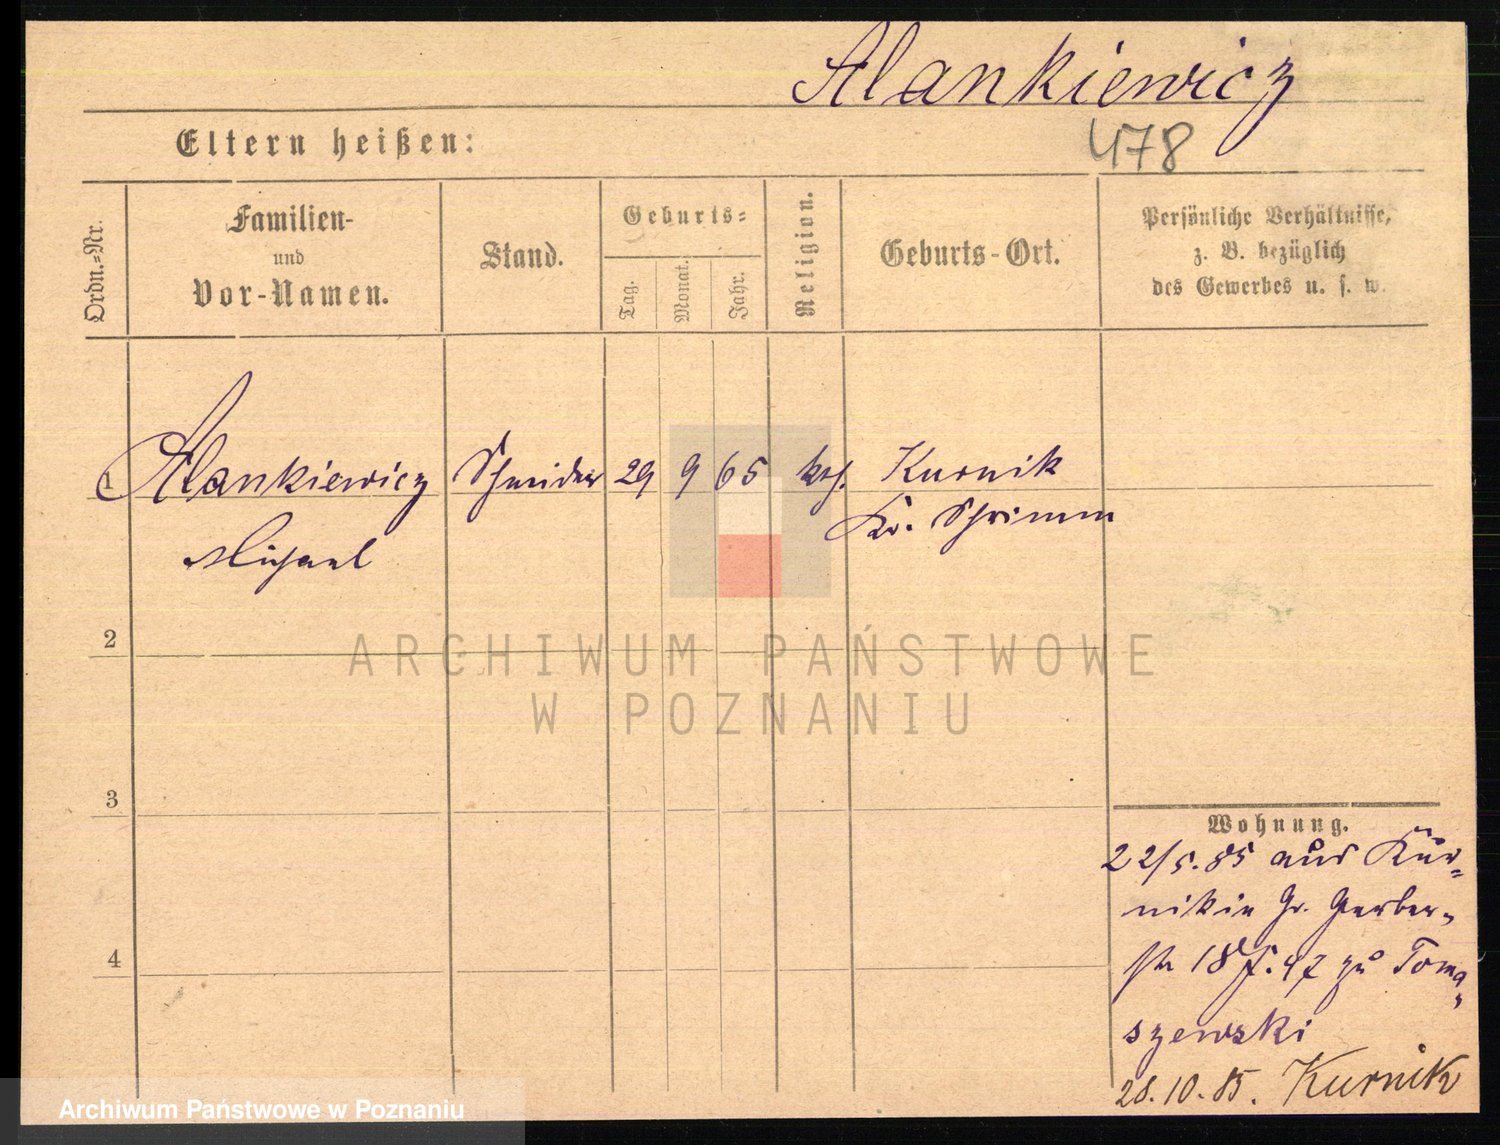 Alankiewicz
Eltern heißen:
478
Ordn.=Nr.
Familien-
und
Vor-Namen.
Stand.
Geburts=
Tag.
Monat.
Jahr.
Religion.
Geburts-Ort.
Persönliche Verhältnisse,
z. B. bezüglich
des Gewerbes u. s. w.
1 Alankiewicz Schneider 29 9 65 kth. Kurnik
Michael Kr. Schrimm
2
3
4
ARCHIWUM PAŃSTWOWE
W POZNANIU
Wohnung.
22/5.85 aus Kur=
nik in Gr. Gerber=
str 18 47 zu Toma=
szewski
28.10.85. Kurnik
Archiwum Państwowe w Poznaniu